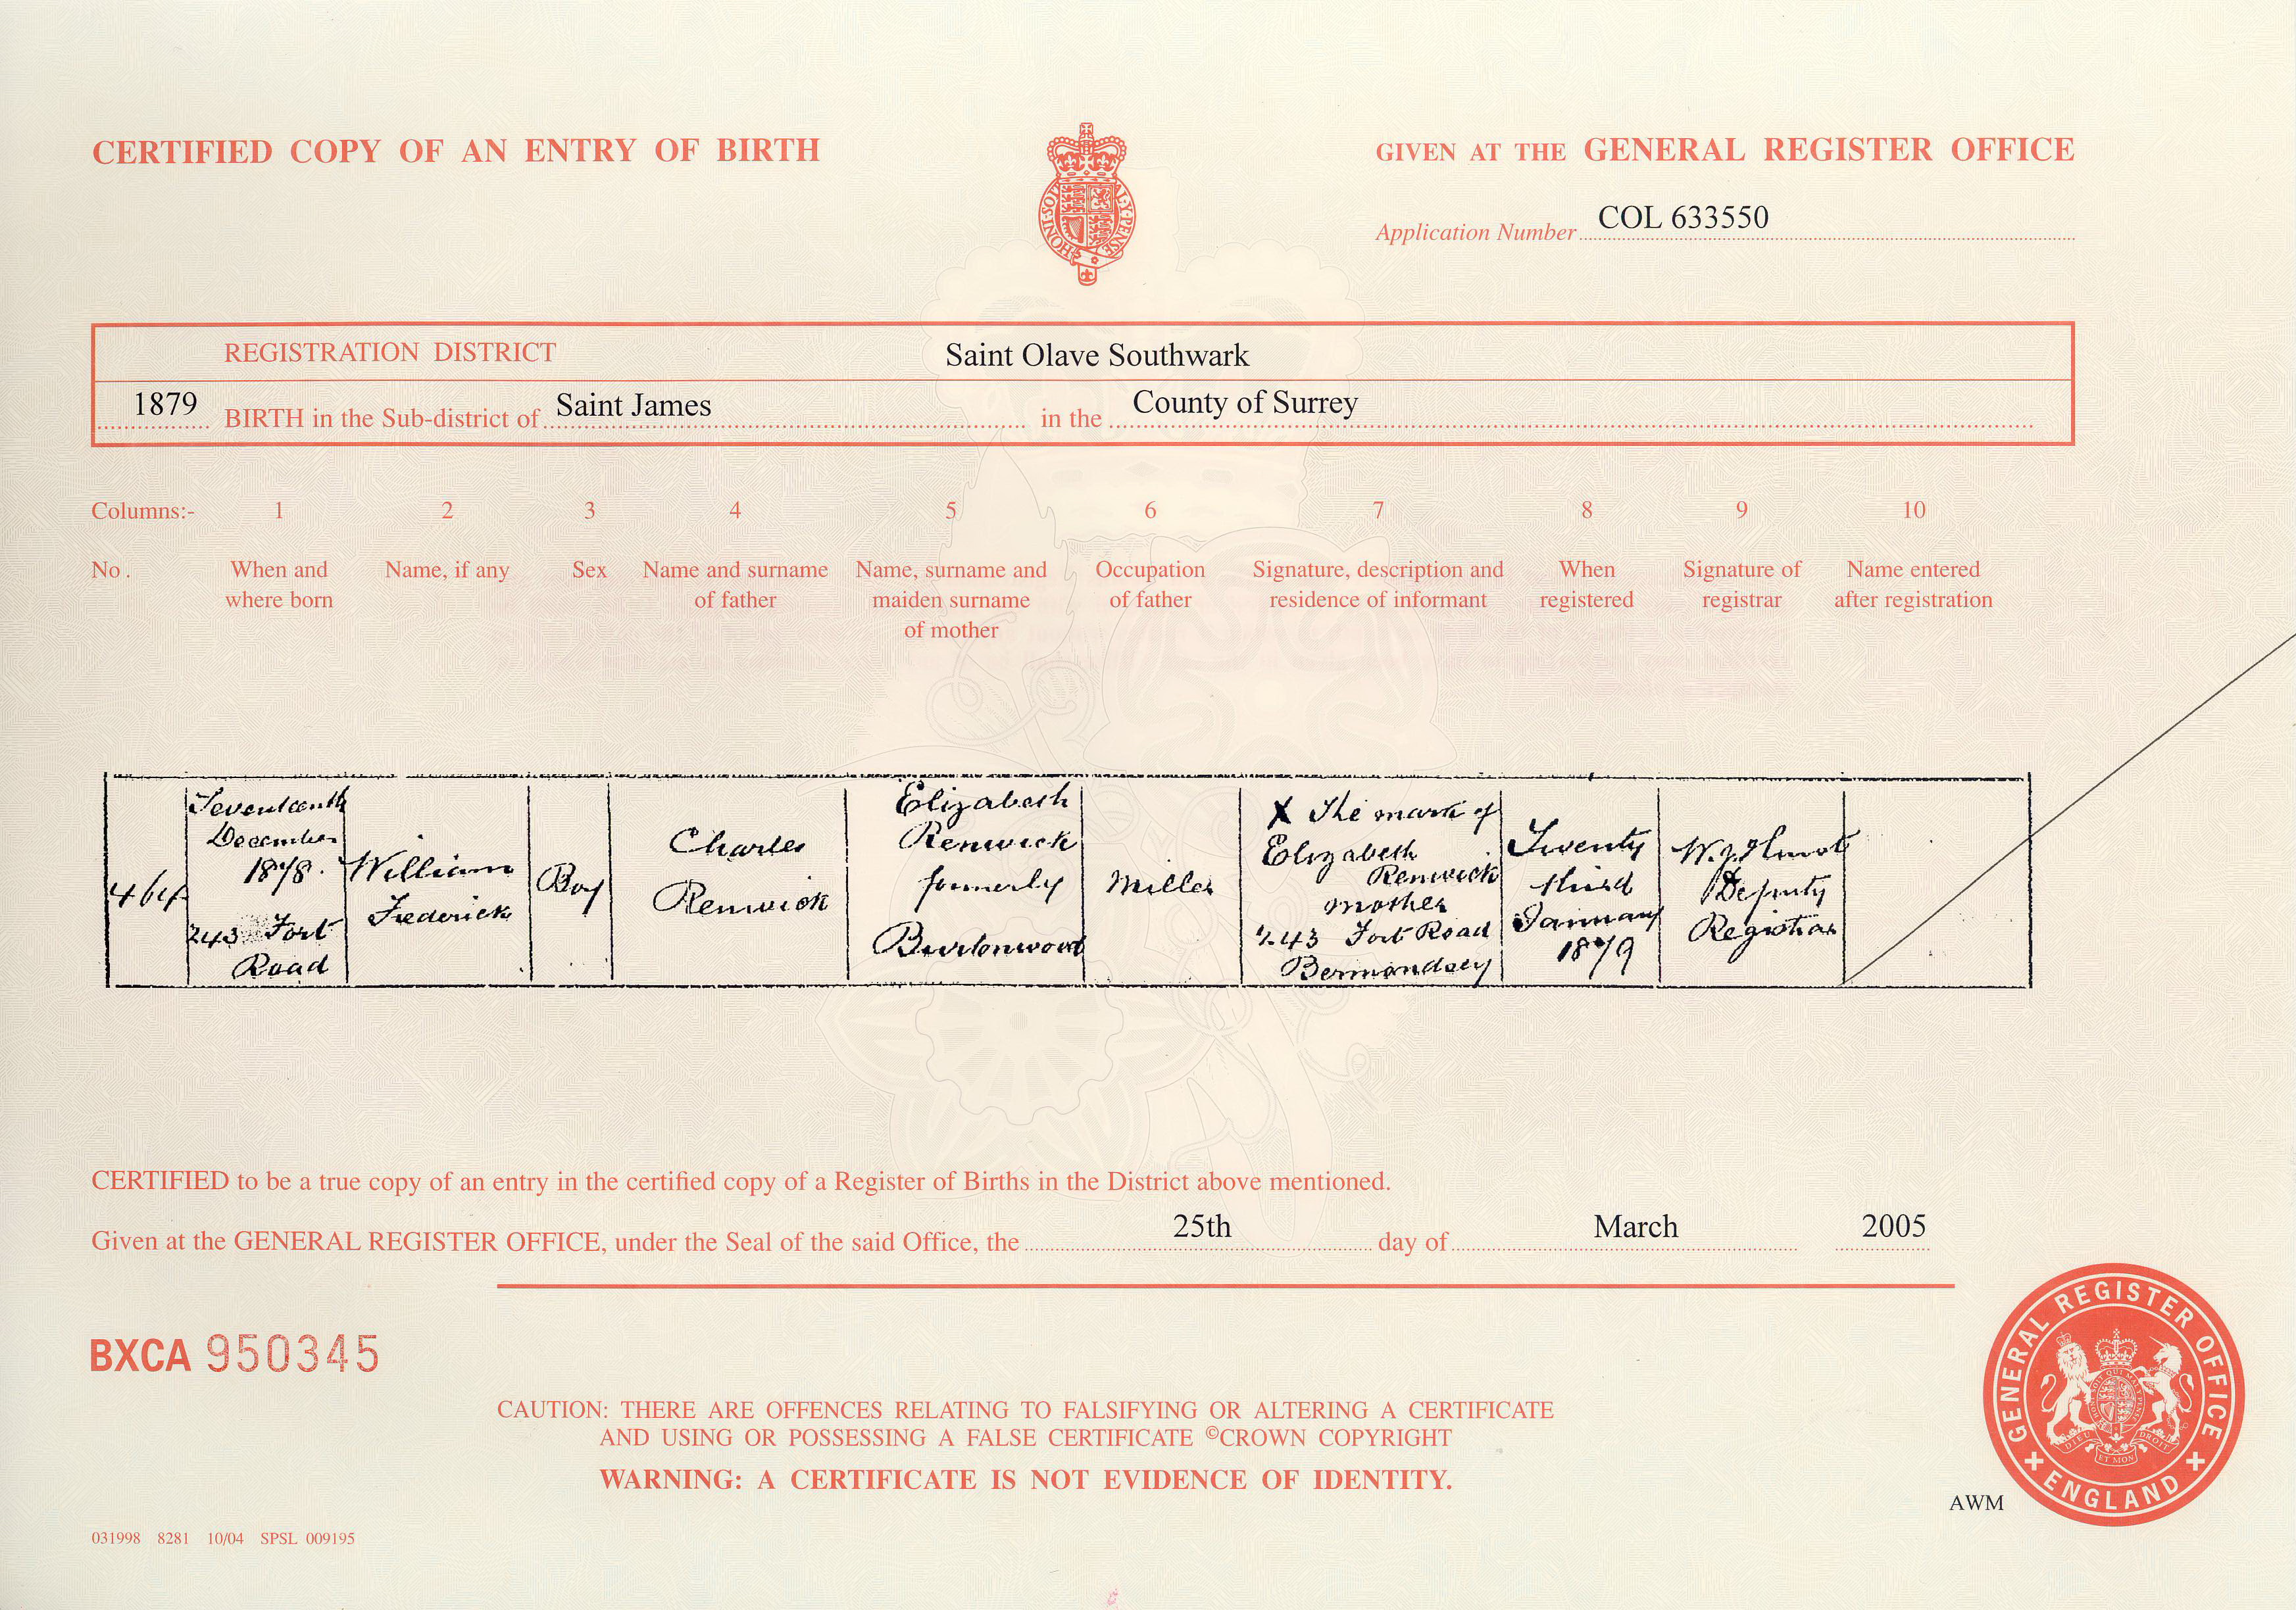 CERTIFIED COPY OF AN ENTRY OF BIRTH
GIVEN AT THE GENERAL REGISTER OFFICE
HONI·SOIT AL·Y·PENSE
Application Number COL 633550
REGISTRATION DISTRICT Saint Olave Southwark
1879 BIRTH in the Sub-district of Saint James in the County of Surrey
Columns:- 1 2 3 4 5 6 7 8 9 10
No. When and where born
Name, if any
Sex
Name and surname of father
Name, surname and maiden surname of mother
Occupation of father
Signature, description and residence of informant
When registered
Signature of registrar
Name entered after registration
464
Seventeenth
December
1878.
243 Fort
Road
William
Frederick
Boy
Charles
Renwick
Elizabeth
Renwick
formerly
Burtonwood
Miller
X The mark of
Elizabeth
Renwick
mother
243 Fort Road
Bermondsey
Twenty
third
January
1879
Deputy
Registrar
CERTIFIED to be a true copy of an entry in the certified copy of a Register of Births in the District above mentioned.
Given at the GENERAL REGISTER OFFICE, under the Seal of the said Office, the 25th day of March 2005
BXCA 950345
CAUTION: THERE ARE OFFENCES RELATING TO FALSIFYING OR ALTERING A CERTIFICATE
AND USING OR POSSESSING A FALSE CERTIFICATE ©CROWN COPYRIGHT
WARNING: A CERTIFICATE IS NOT EVIDENCE OF IDENTITY.
GENERAL REGISTER OFFICE
ENGLAND
DIEU ET MON DROIT
AWM
031998 8281 10/04 SPSL 009195